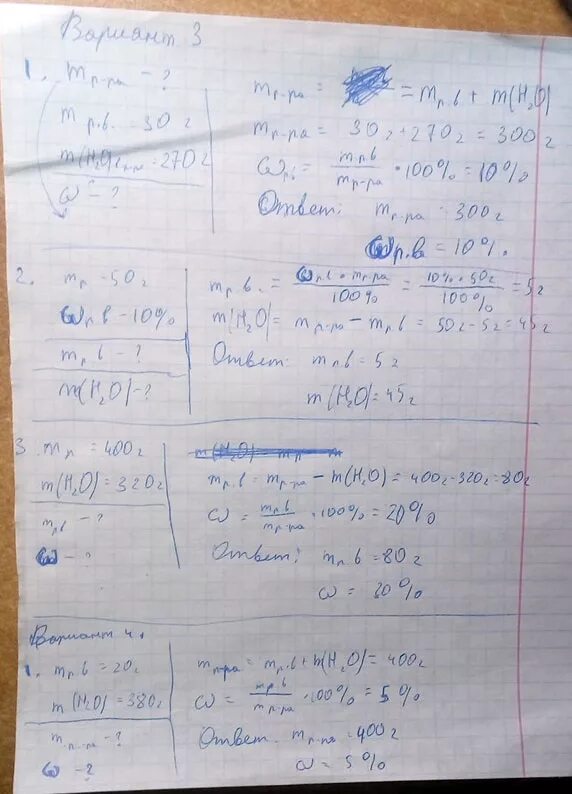 Вариант 3
1. m р-ра - ?
m р.в. - 30 г
m(H₂O) - 270 г
ω - ?
m р-ра = = m р.в + m(H₂O)
m р-ра = 30 г + 270 г = 300 г
ω р.в = m р.в / m р-ра · 100% = 10%
Ответ: m р-ра = 300 г
ω р.в = 10%.
2. m р - 50 г
ω р.в - 10%
m р.в - ?
m(H₂O) - ?
m р.в. = ω р.в · m р-ра / 100% = 10% · 50 г / 100% = 5 г
m(H₂O) = m р-ра - m р.в = 50 г - 5 г = 45 г
Ответ: m р.в = 5 г
m(H₂O) = 45 г
3. m р = 400 г
m(H₂O) = 320 г
m р.в - ?
ω - ?
m р.в = m р-ра - m(H₂O) = 400 г - 320 г = 80 г
ω = m р.в / m р-ра · 100% = 20%
Ответ: m р.в = 80 г
ω = 20%
Вариант 4.
1. m р.в = 20 г
m(H₂O) = 380 г
m р-ра - ?
ω - ?
m р-ра = m р.в + m(H₂O) = 400 г
ω = m р.в / m р-ра · 100% = 5%
Ответ. m р-ра = 400 г
ω = 5%